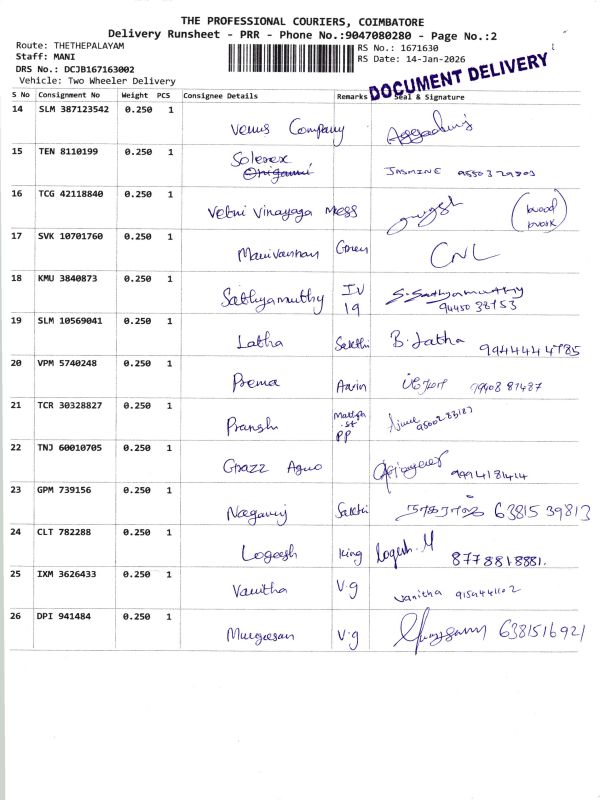 THE PROFESSIONAL COURIERS, COIMBATORE
Delivery Runsheet - PRR - Phone No.:9047080280 - Page No.:2
Route: THETHEPALAYAM
Staff: MANI
DRS No.: DCJB167163002
Vehicle: Two Wheeler Delivery
RS No.: 1671630
RS Date: 14-Jan-2026
DOCUMENT DELIVERY
S No Consignment No Weight PCS Consignee Details Remarks Seal & Signature
14 SLM 387123542 0.250 1 Venus Company
15 TEN 8110199 0.250 1 Solerex JASMINE
16 TCG 42118840 0.250 1 Vetri Vinayaga Mess
17 SVK 10701760 0.250 1 Manivannan Green CNL
18 KMU 3840873 0.250 1 Sathyamuthy IV 19 S. Sathyamuthy 94450 38753
19 SLM 10569041 0.250 1 Latha Sakthi B. Latha 9944444785
20 VPM 5740248 0.250 1 Prema 99408 87487
21 TCR 30328827 0.250 1 PP 9500283187
22 TNJ 60010705 0.250 1 Grazz Agno 9994181414
23 GPM 739156 0.250 1 Nagaraj Sakthi நாகராஜ் 63815 39813
24 CLT 782288 0.250 1 Logeesh King Logesh. M 8778818881.
25 IXM 3626433 0.250 1 Vanitha V.g vanitha 9159441102
26 DPI 941484 0.250 1 Murgeesan V.g 6381516921